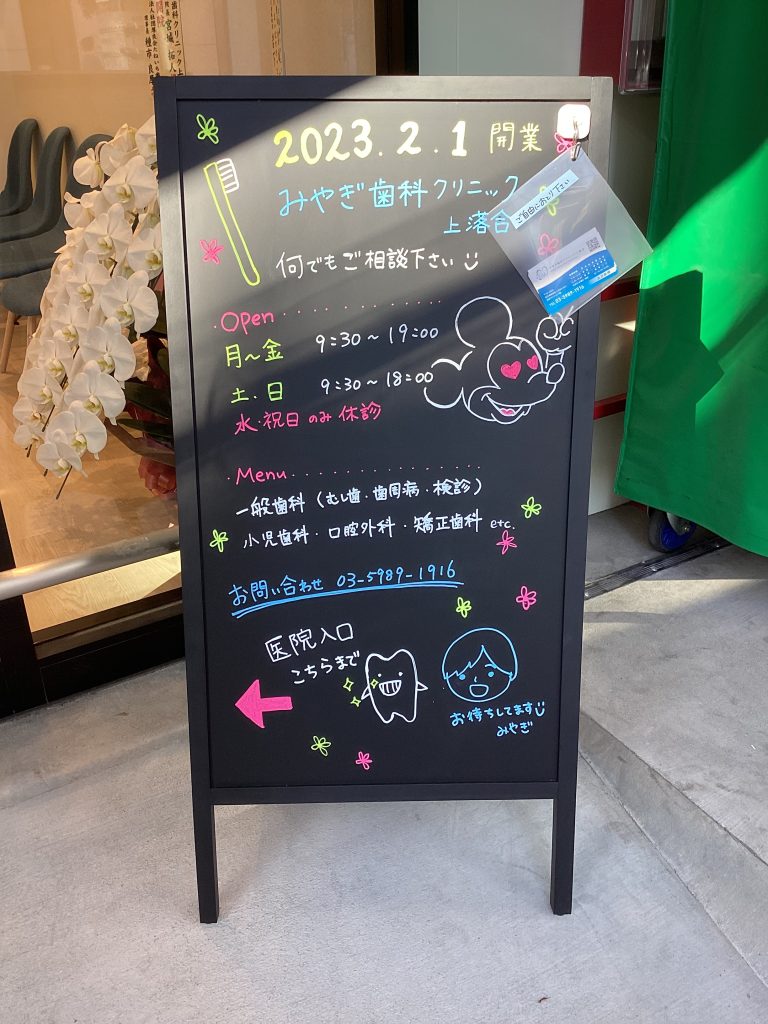 2023.2.1 開業
みやぎ歯科クリニック
上落合
何でもご相談下さい
Open
月〜金 9:30〜19:00
土・日 9:30〜18:00
水・祝日のみ休診
Menu
一般歯科(むし歯・歯周病・検診)
小児歯科・口腔外科・矯正歯科 etc.
お問い合わせ 03-5989-1916
医院入口
こちらまで
お待ちしてます
みやぎ
ご自由にお とり下さい
TEL 03-5989-1916